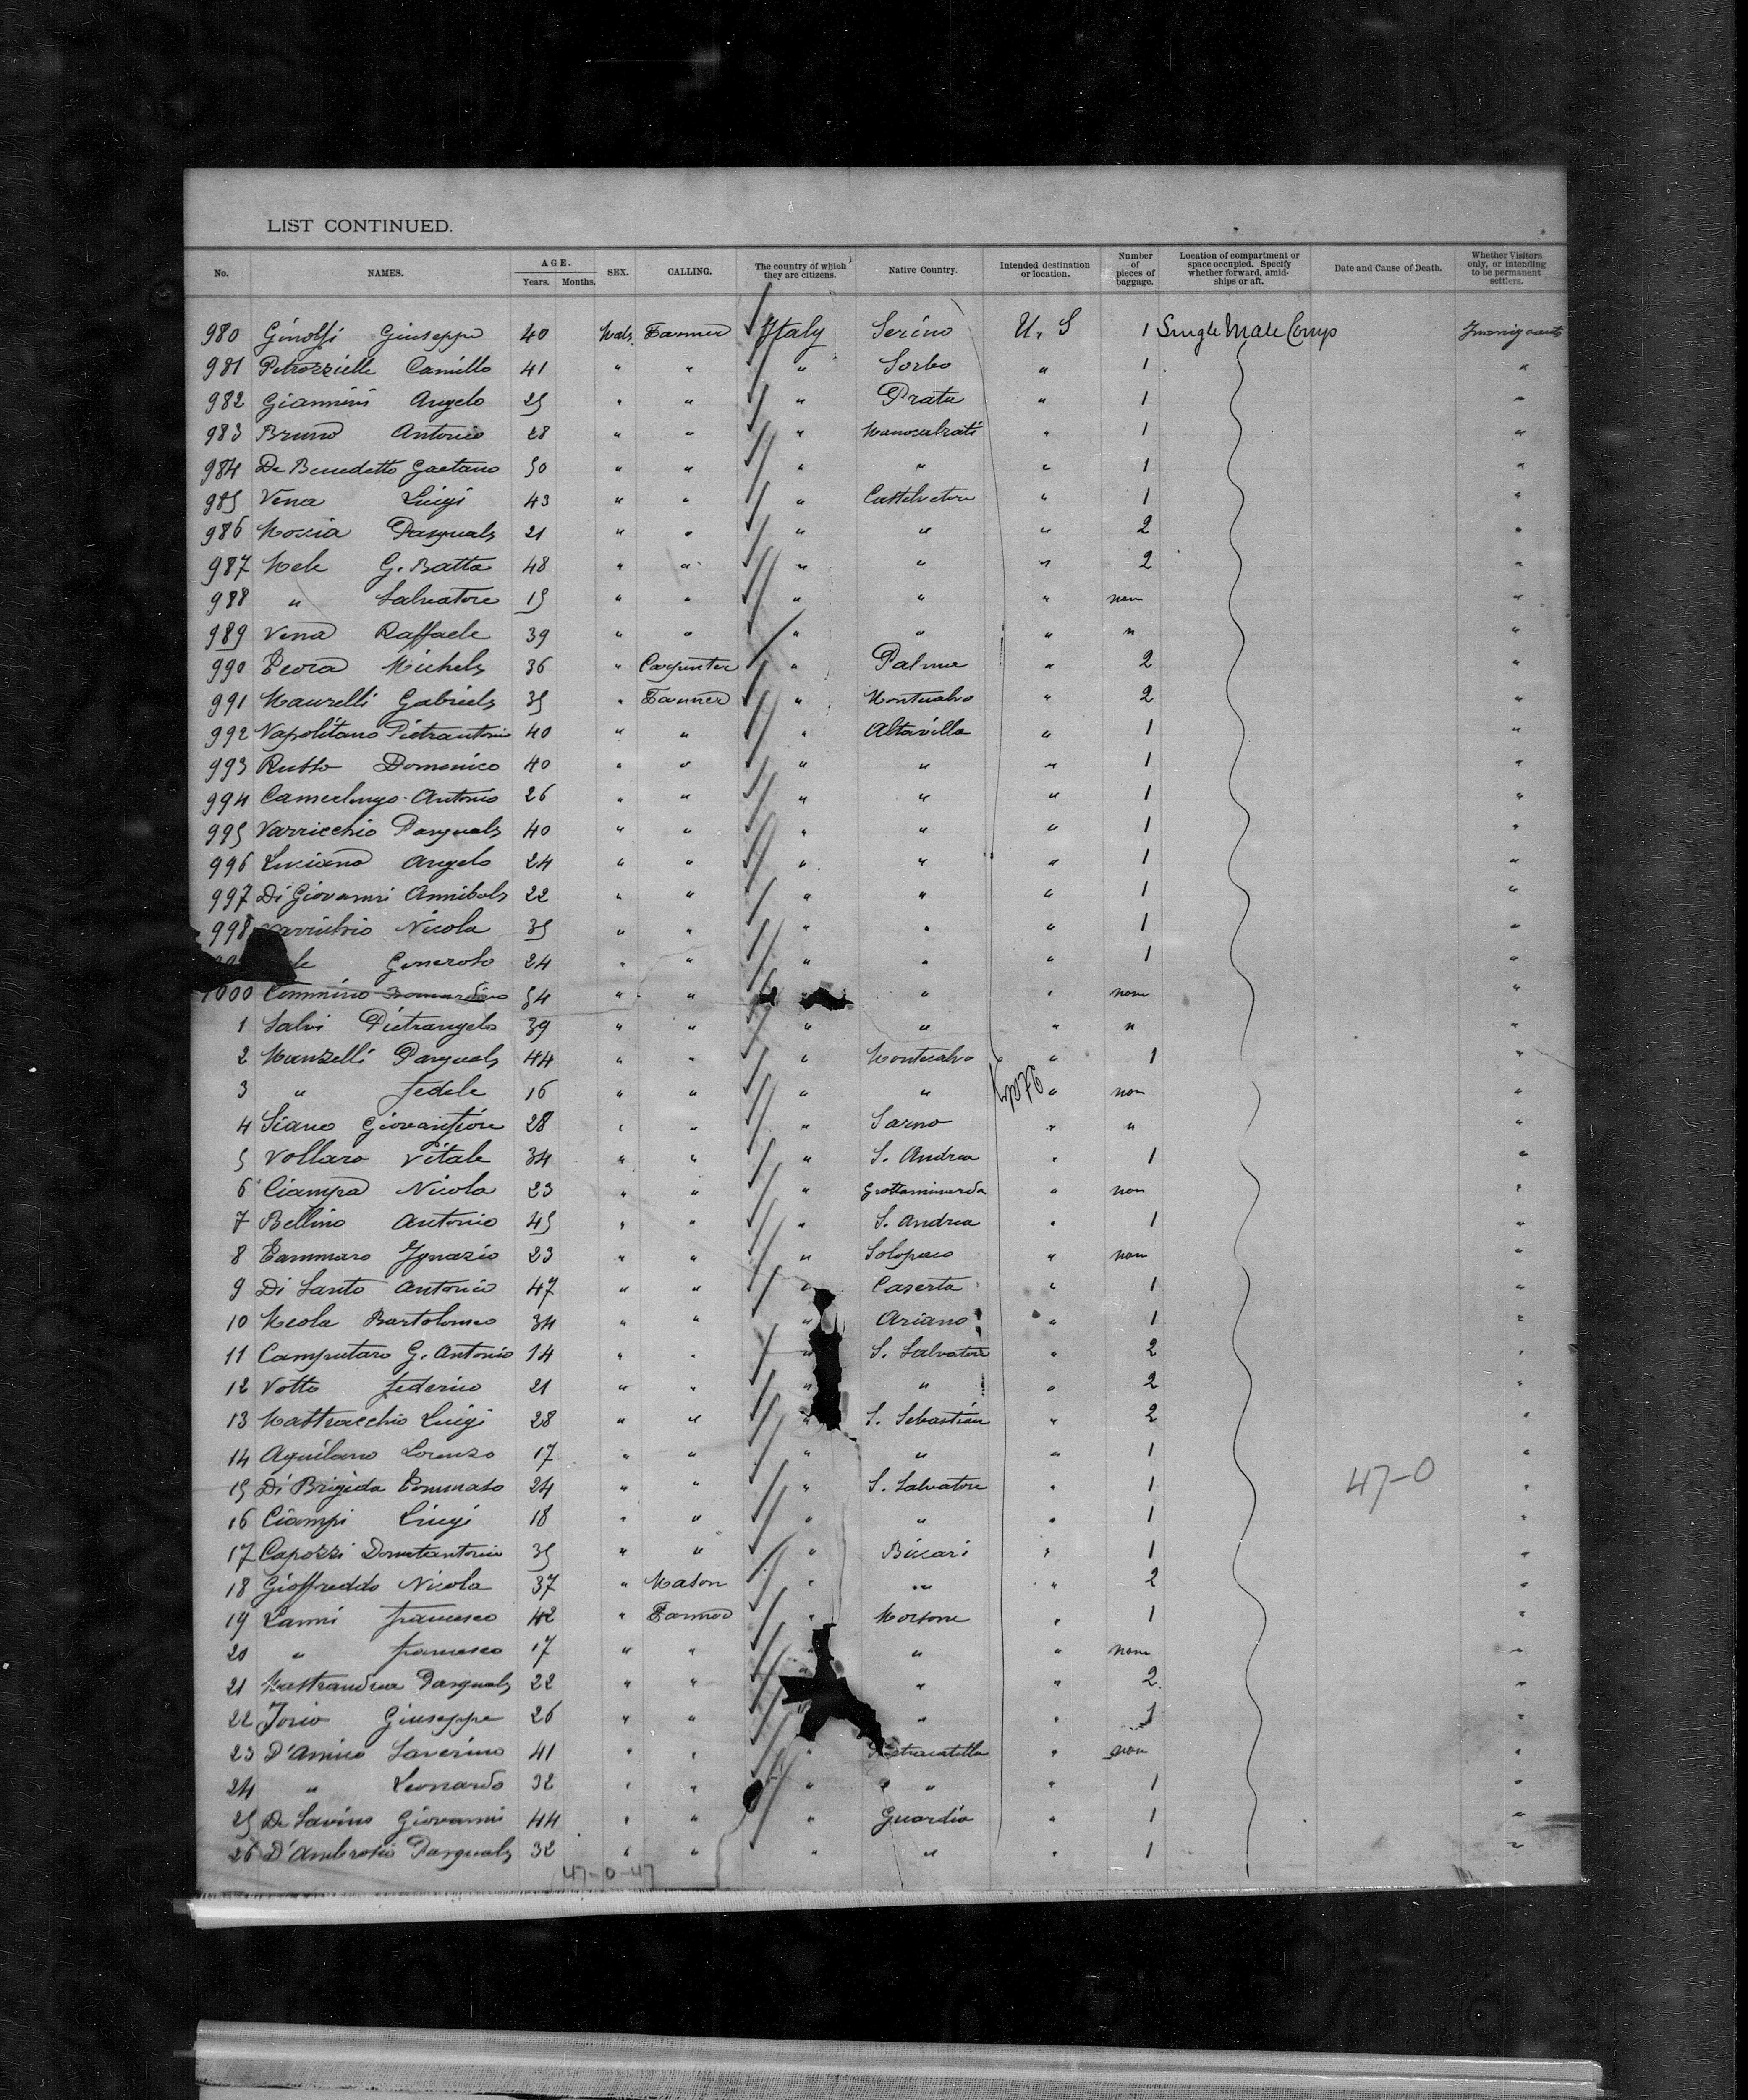 LIST CONTINUED.
No. NAMES. AGE. Years. Months. SEX. CALLING. The country of which they are citizens. Native Country. Intended destination or location. Number of pieces of baggage. Location of compartment or space occupied. Specify whether forward, amidships or aft. Date and Cause of Death. Whether Visitors only, or intending to be permanent settlers.
980 Ginolfi Giuseppe 40 Male Farmer Italy Serino U. S 1 Single Male Comp Immigrants
981 Petrozzielle Camillo 41 " " " Sorbo " 1 "
982 Giannini Angelo 25 " " " Prata " 1 "
983 Bruno Antonio 28 " " " Manocalzati " 1 "
984 De Benedetto Gaetano 50 " " " " " 1 "
985 Vena Luigi 43 " " " Castelvetere " 1 "
986 Moscia Pasquale 21 " " " " " 2 "
987 Mele G. Batta 48 " " " " " 2 "
988 " Salvatore 15 " " " " " non "
989 Vena Raffaele 39 " " " " " " "
990 Michele 36 " Carpenter " Palma " 2 "
991 Maurelli Gabriele 35 " Farmer " Montecalvo " 2 "
992 Napolitano Pietrantonio 40 " " " Altavilla " 1 "
993 Russo Domenico 40 " " " " " 1 "
994 Camerlengo Antonio 26 " " " " " 1 "
995 Varricchio Pasquale 40 " " " " " 1 "
996 Luciano Angelo 24 " " " " " 1 "
997 Di Giovanni Annibale 22 " " " " " 1 "
998 Nicola 35 " " " " " 1 "
Generoso 24 " " " " " 1 "
1000 Cimmino 54 " " " " " none "
1 Salvi Pietrangelo 39 " " " " " " "
2 Manzelli Pasquale 44 " " " Montecalvo " 1 "
3 " Fedele 16 " " " " " non "
Italy
4 Siano Giovanfiore 28 " " " Sarno " " "
5 Vollaro Vitale 34 " " " S. Andrea " 1 "
6 Ciampa Nicola 23 " " " Grottaminarda " non "
7 Bellino Antonio 45 " " " S. Andrea " 1 "
8 Tammaro Ignazio 23 " " " Solopaco " non "
9 Di Santo Antonio 47 " " " Caserta " 1 "
10 Meola Bartolomeo 34 " " " Ariano " 1 "
11 Camputaro G. Antonio 14 " " " S. Salvatore " 2 "
12 Votto Federico 21 " " " " " 2 "
13 Mastracchio Luigi 28 " " " S. Sebastian " 2 "
14 Aquilano Lorenzo 17 " " " " " 1 "
15 Di Brigida Tommaso 24 " " " S. Salvatore " 1 47-0 "
16 Ciampi Luigi 18 " " " " " 1 "
17 Capozzi Donatantonio 35 " " " Biccari " 1 "
18 Gioffreddo Nicola 37 " Mason " " " 2 "
19 Lanni Francesco 42 " Farmer " Morsone " 1 "
20 " Francesco 17 " " " " " none "
21 Mastrandrea Pasquale 22 " " " " " 2 "
22 Iorio Giuseppe 26 " " " " " 1 "
23 D'Amico Saverino 41 " " " Pietracatella " non "
24 " Leonardo 32 " " " " " 1 "
25 De Savino Giovanni 44 " " " Guardia " 1 "
26 D'Ambrosio Pasquale 32 " " " " " 1 "
47-0-47